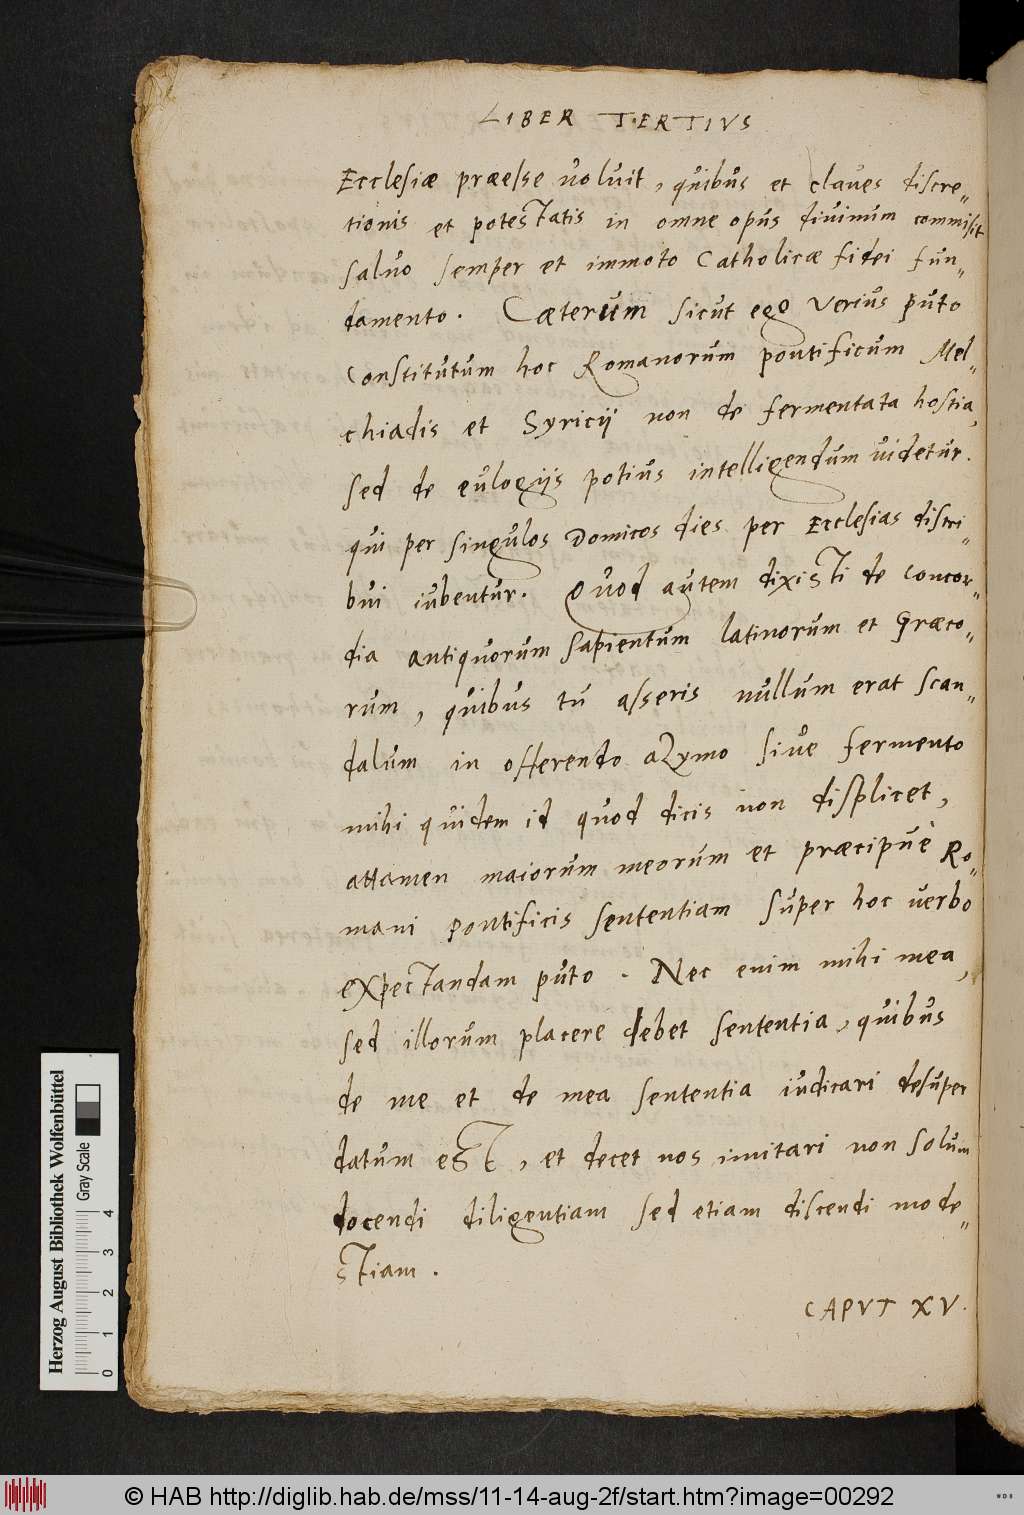 LIBER TERTIVS
Ecclesiæ præesse voluit, quibus et claues discre-
tionis et potestatis in omne opus diuinum commisit
salvo semper et immoto Catholicæ fidei fun-
damento. Cæterum sicut ego verius puto
constitutum hoc Romanorum pontificum Mel-
chiadis et Syricij non de fermentata hostia,
sed de eulogijs potius intelligendum uidetur.
qui per singulos Domicos dies per Ecclesias distri-
bui iubentur. Quod autem dixisti de concor-
dia antiquorum sapientum latinorum et Græco-
rum, quibus tu asseris nullum erat scan-
dalum in offerendo azymo siue fermento
mihi quidem id quod dicis non displicet,
attamen maiorum meorum et præcipuè Ro-
mani pontificis sententiam super hoc verbo
expectandam puto. Nec enim mihi mea,
sed illorum placere debet sententia, quibus
de me et de mea sententia iudicari desuper
datum est, et decet nos imitari non solum
docendi diligentiam sed etiam discendi mode-
stiam.
CAPVT XV.
Herzog August Bibliothek Wolfenbüttel
Gray Scale
0 1 2 3 4
© HAB http://diglib.hab.de/mss/11-14-aug-2f/start.htm?image=00292